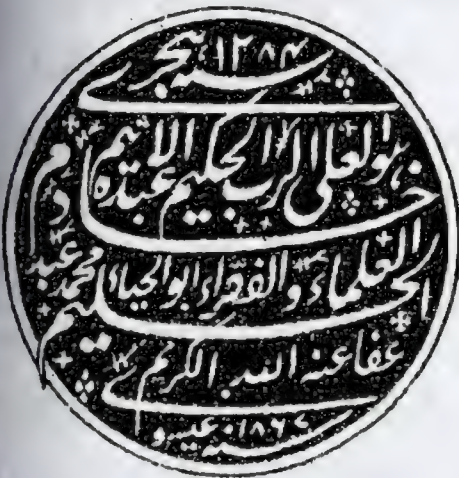 سنہ ۱۲۸۴ ہجری
ہوالعلی الرب الحکیم عبدہ الاثیم
خادم
العلماء والفقراء ابوالحیاء محمد عبد
الحلیم
عفا عنہ اللہ الکریم
سنہ ۱۸۶۷ عیسوی